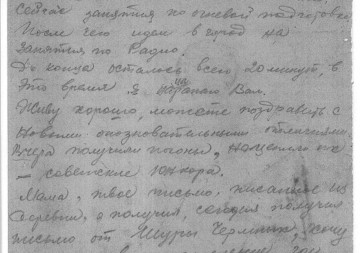 Сейчас занятия по огневой подготовке
После чего идем в город на
занятия по Радио.
До конца осталось всего 20 минут, в
это время я Вам.
Живу хорошо, можете поздравить с
Новыми опознавательными
Вчера получили погоны,
– советские
Мама, твое письмо, писанное из
деревни, я получил, сегодня получил
письмо от Шуры